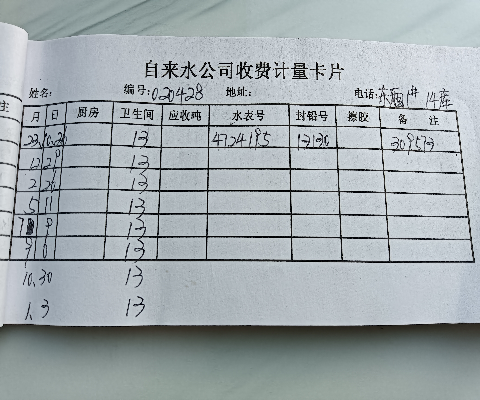 自来水公司收费计量卡片
姓名: 编号:020428 地址: 电话: 14库
月 日 厨房 卫生间 应收吨 水表号 封铅号 擦胶 备注
13 4724195 309573
12 29 13
2 26 13
5 11 13
7 8 13
9 6 13
10.30 13
1.3 13